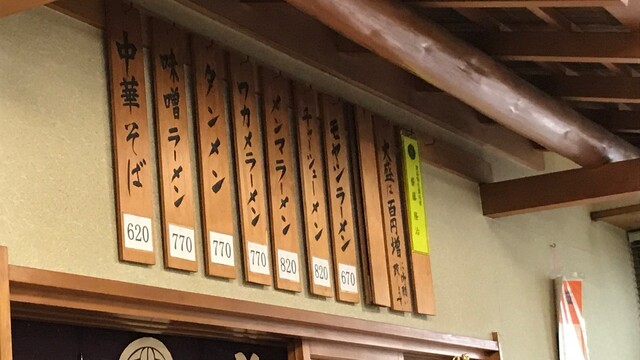 中華そば
620
味噌ラーメン
770
タンメン
770
ワカメラーメン
770
メンマラーメン
820
チャーシューメン
820
モヤシラーメン
670
大盛は百円増